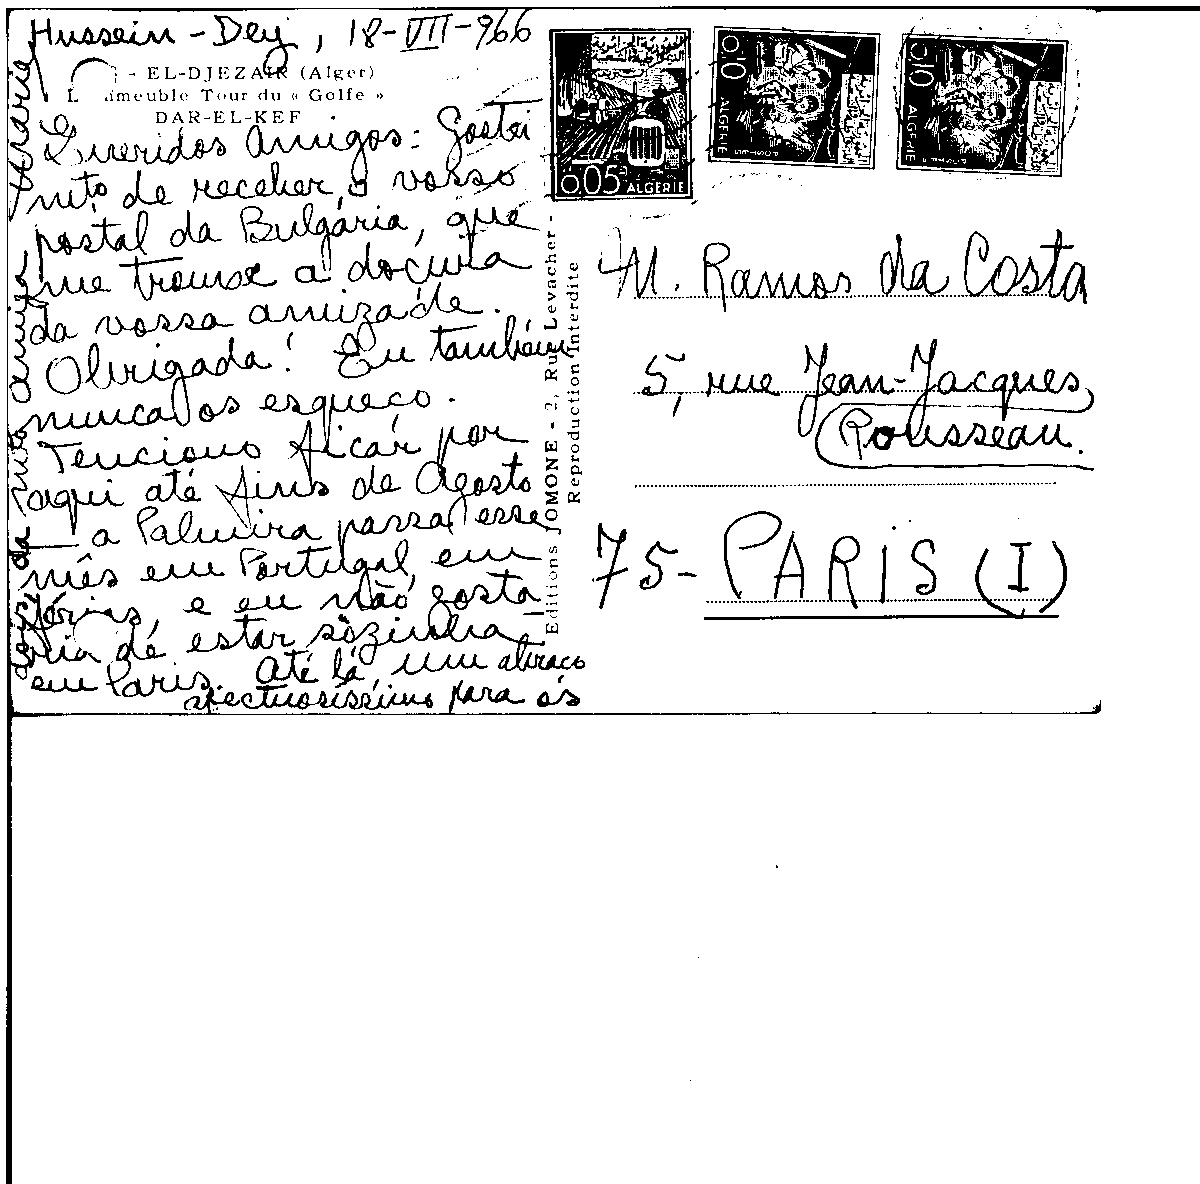 Hussein-Dey, 18-VII-966
- EL-DJEZAIR (Alger)
L meuble Tour du « Golfe »
DAR-EL-KEF
Queridos Amigos: Gostei
mtº de receber o vosso
postal da Bulgária, que
me trouxe a doçura
da vossa amizade.
Obrigada! Eu também
nunca os esqueço.
Tenciono ficar por
aqui até fins de Agosto
— a Palmira passa esse
mês em Portugal, em
férias, e eu não gosta-
ria de estar sòzinha
em Paris. Até lá, um abraço
afectuosíssimo para os
dois, da muito amiga, Maria
Editions JOMONE - 2, Rue Levacher -
Reproduction Interdite
0.05 ALGERIE
0,10 ALGERIE POSTES
0,10 ALGERIE POSTES
M. Ramos da Costa
5, rue Jean-Jacques
Rousseau.
75-PARIS (I)